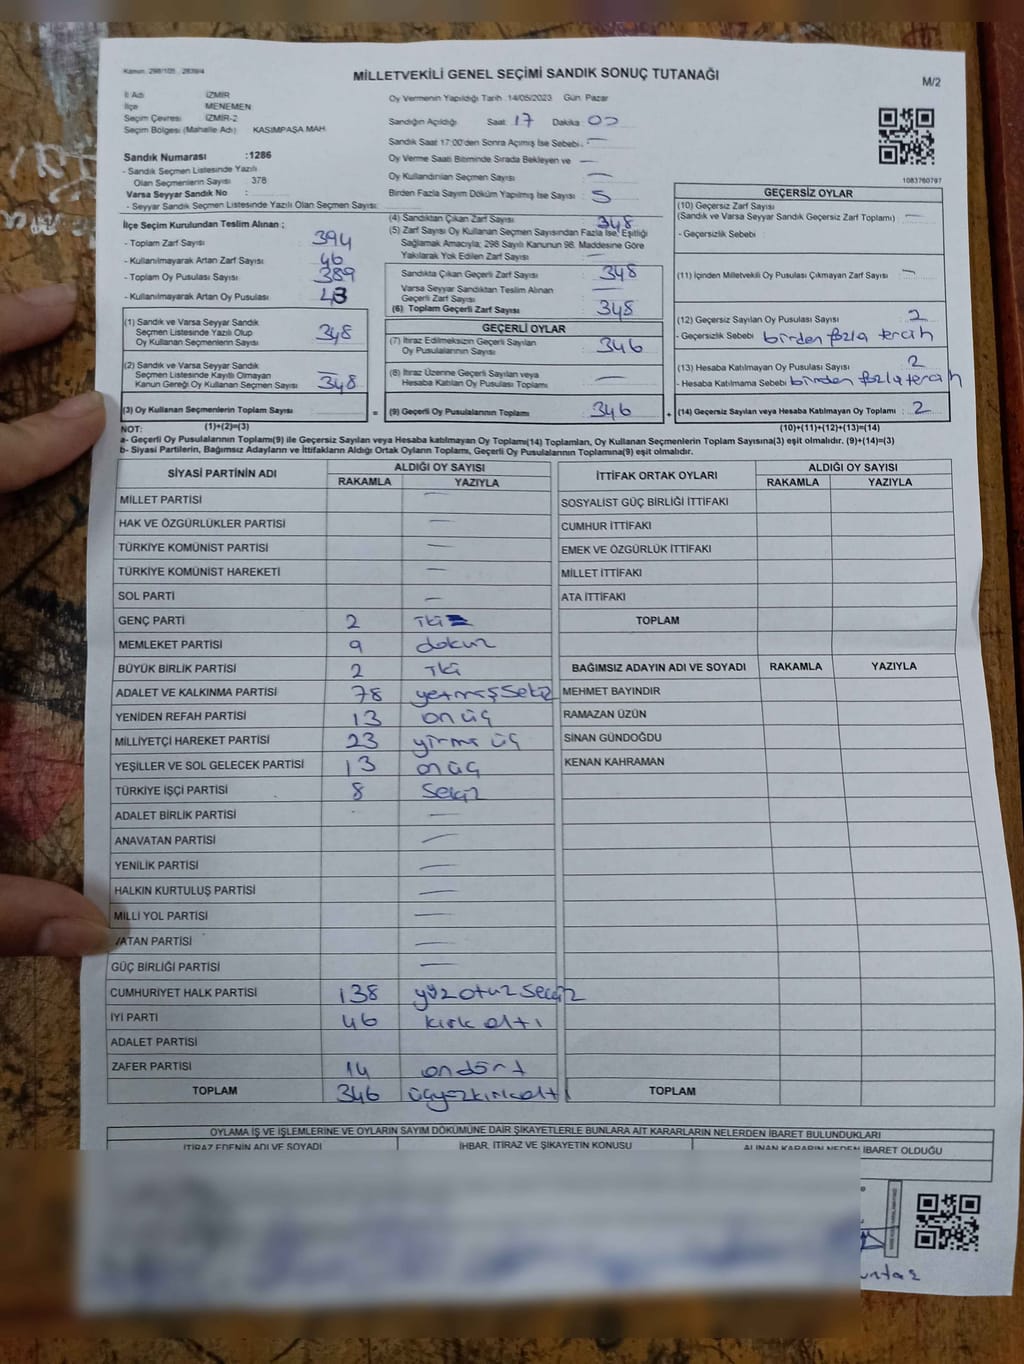 Kanun. 298/105 , 2839/4
MİLLETVEKİLİ GENEL SEÇİMİ SANDIK SONUÇ TUTANAĞI
M/2
İl Adı İZMİR
İlçe MENEMEN
Seçim Çevresi İZMİR-2
Seçim Bölgesi (Mahalle Adı) KASIMPAŞA MAH.
Sandık Numarası :1286
- Sandık Seçmen Listesinde Yazılı
Olan Seçmenlerin Sayısı 378
Varsa Seyyar Sandık No :
- Seyyar Sandık Seçmen Listesinde Yazılı Olan Seçmen Sayısı:
Oy Vermenin Yapıldığı Tarih :14/05/2023 Gün: Pazar
Sandığın Açıldığı Saat :17 Dakika :00
Sandık Saat 17:00'den Sonra Açımış İse Sebebi : —
Oy Verme Saati Bitiminde Sırada Bekleyen ve —
Oy Kullandırılan Seçmen Sayısı —
Birden Fazla Sayım Döküm Yapılmış İse Sayısı : 5
1083760797
İlçe Seçim Kurulundan Teslim Alınan ;
- Toplam Zarf Sayısı 394
- Kullanılmayarak Artan Zarf Sayısı 46
- Toplam Oy Pusulası Sayısı 389
- Kullanılmayarak Artan Oy Pusulası 43
(1) Sandık ve Varsa Seyyar Sandık
Seçmen Listesinde Yazılı Olup
Oy Kullanan Seçmenlerin Sayısı 348
(2) Sandık ve Varsa Seyyar Sandık
Seçmen Listesinde Kayıtlı Olmayan —
Kanun Gereği Oy Kullanan Seçmen Sayısı 348
(3) Oy Kullanan Seçmenlerin Toplam Sayısı =
(1)+(2)=(3)
(4) Sandıktan Çıkan Zarf Sayısı 348
(5) Zarf Sayısı Oy Kullanan Seçmen Sayısından Fazla İse, Eşitliği
Sağlamak Amacıyla; 298 Sayılı Kanunun 98. Maddesine Göre
Yakılarak Yok Edilen Zarf Sayısı —
Sandıkta Çıkan Geçerli Zarf Sayısı 348
Varsa Seyyar Sandıktan Teslim Alınan
Geçerli Zarf Sayısı —
(6) Toplam Geçerli Zarf Sayısı 348
GEÇERLİ OYLAR
(7) İtiraz Edilmeksizin Geçerli Sayılan
Oy Pusulalarının Sayısı 346
(8) İtiraz Üzerine Geçerli Sayılan veya
Hesaba Katılan Oy Pusulası Toplamı —
(9) Geçerli Oy Pusulalarının Toplamı 346 +
GEÇERSİZ OYLAR
(10) Geçersiz Zarf Sayısı
(Sandık ve Varsa Seyyar Sandık Geçersiz Zarf Toplamı) : —
- Geçersizlik Sebebi :
(11) İçinden Milletvekili Oy Pusulası Çıkmayan Zarf Sayısı : —
(12) Geçersiz Sayılan Oy Pusulası Sayısı : 2
- Geçersizlik Sebebi : birden fazla tercih
(13) Hesaba Katılmayan Oy Pusulası Sayısı : 2
- Hesaba Katılmama Sebebi : birden fazla tercih
(14) Geçersiz Sayılan veya Hesaba Katılmayan Oy Toplamı : 2
(10)+(11)+(12)+(13)=(14)
NOT:
a- Geçerli Oy Pusulalarının Toplamı(9) ile Geçersiz Sayılan veya Hesaba katılmayan Oy Toplamı(14) Toplamları, Oy Kullanan Seçmenlerin Toplam Sayısına(3) eşit olmalıdır. (9)+(14)=(3)
b- Siyasi Partilerin, Bağımsız Adayların ve İttifakların Aldığı Ortak Oyların Toplamı, Geçerli Oy Pusulalarının Toplamına(9) eşit olmalıdır.
SİYASİ PARTİNİN ADI ALDIĞI OY SAYISI
RAKAMLA YAZIYLA
MİLLET PARTİSİ —
HAK VE ÖZGÜRLÜKLER PARTİSİ —
TÜRKİYE KOMÜNİST PARTİSİ —
TÜRKİYE KOMÜNİST HAREKETİ —
SOL PARTİ —
GENÇ PARTİ 2 İki
MEMLEKET PARTİSİ 9 dokuz
BÜYÜK BİRLİK PARTİSİ 2 İki
ADALET VE KALKINMA PARTİSİ 78 yetmişsekiz
YENİDEN REFAH PARTİSİ 13 onüç
MİLLİYETÇİ HAREKET PARTİSİ 23 yirmi üç
YEŞİLLER VE SOL GELECEK PARTİSİ 13 onüç
TÜRKİYE İŞÇİ PARTİSİ 8 Sekiz
ADALET BİRLİK PARTİSİ —
ANAVATAN PARTİSİ —
YENİLİK PARTİSİ —
HALKIN KURTULUŞ PARTİSİ —
MİLLİ YOL PARTİSİ —
VATAN PARTİSİ —
GÜÇ BİRLİĞİ PARTİSİ —
CUMHURİYET HALK PARTİSİ 138 yüzotuzsekiz
İYİ PARTİ 46 kırk altı
ADALET PARTİSİ
ZAFER PARTİSİ 14 ondört
TOPLAM 346 üçyüzkırkaltı
İTTİFAK ORTAK OYLARI ALDIĞI OY SAYISI
RAKAMLA YAZIYLA
SOSYALİST GÜÇ BİRLİĞİ İTTİFAKI
CUMHUR İTTİFAKI
EMEK VE ÖZGÜRLÜK İTTİFAKI
MİLLET İTTİFAKI
ATA İTTİFAKI
TOPLAM
BAĞIMSIZ ADAYIN ADI VE SOYADI RAKAMLA YAZIYLA
MEHMET BAYINDIR
RAMAZAN ÜZÜN
SİNAN GÜNDOĞDU
KENAN KAHRAMAN
TOPLAM
OYLAMA İŞ VE İŞLEMLERİNE VE OYLARIN SAYIM DÖKÜMÜNE DAİR ŞİKAYETLERLE BUNLARA AİT KARARLARIN NELERDEN İBARET BULUNDUKLARI
İTİRAZ EDENİN ADI VE SOYADI İHBAR, İTİRAZ VE ŞİKAYETİN KONUSU ALINAN KARARIN NEDEN İBARET OLDUĞU